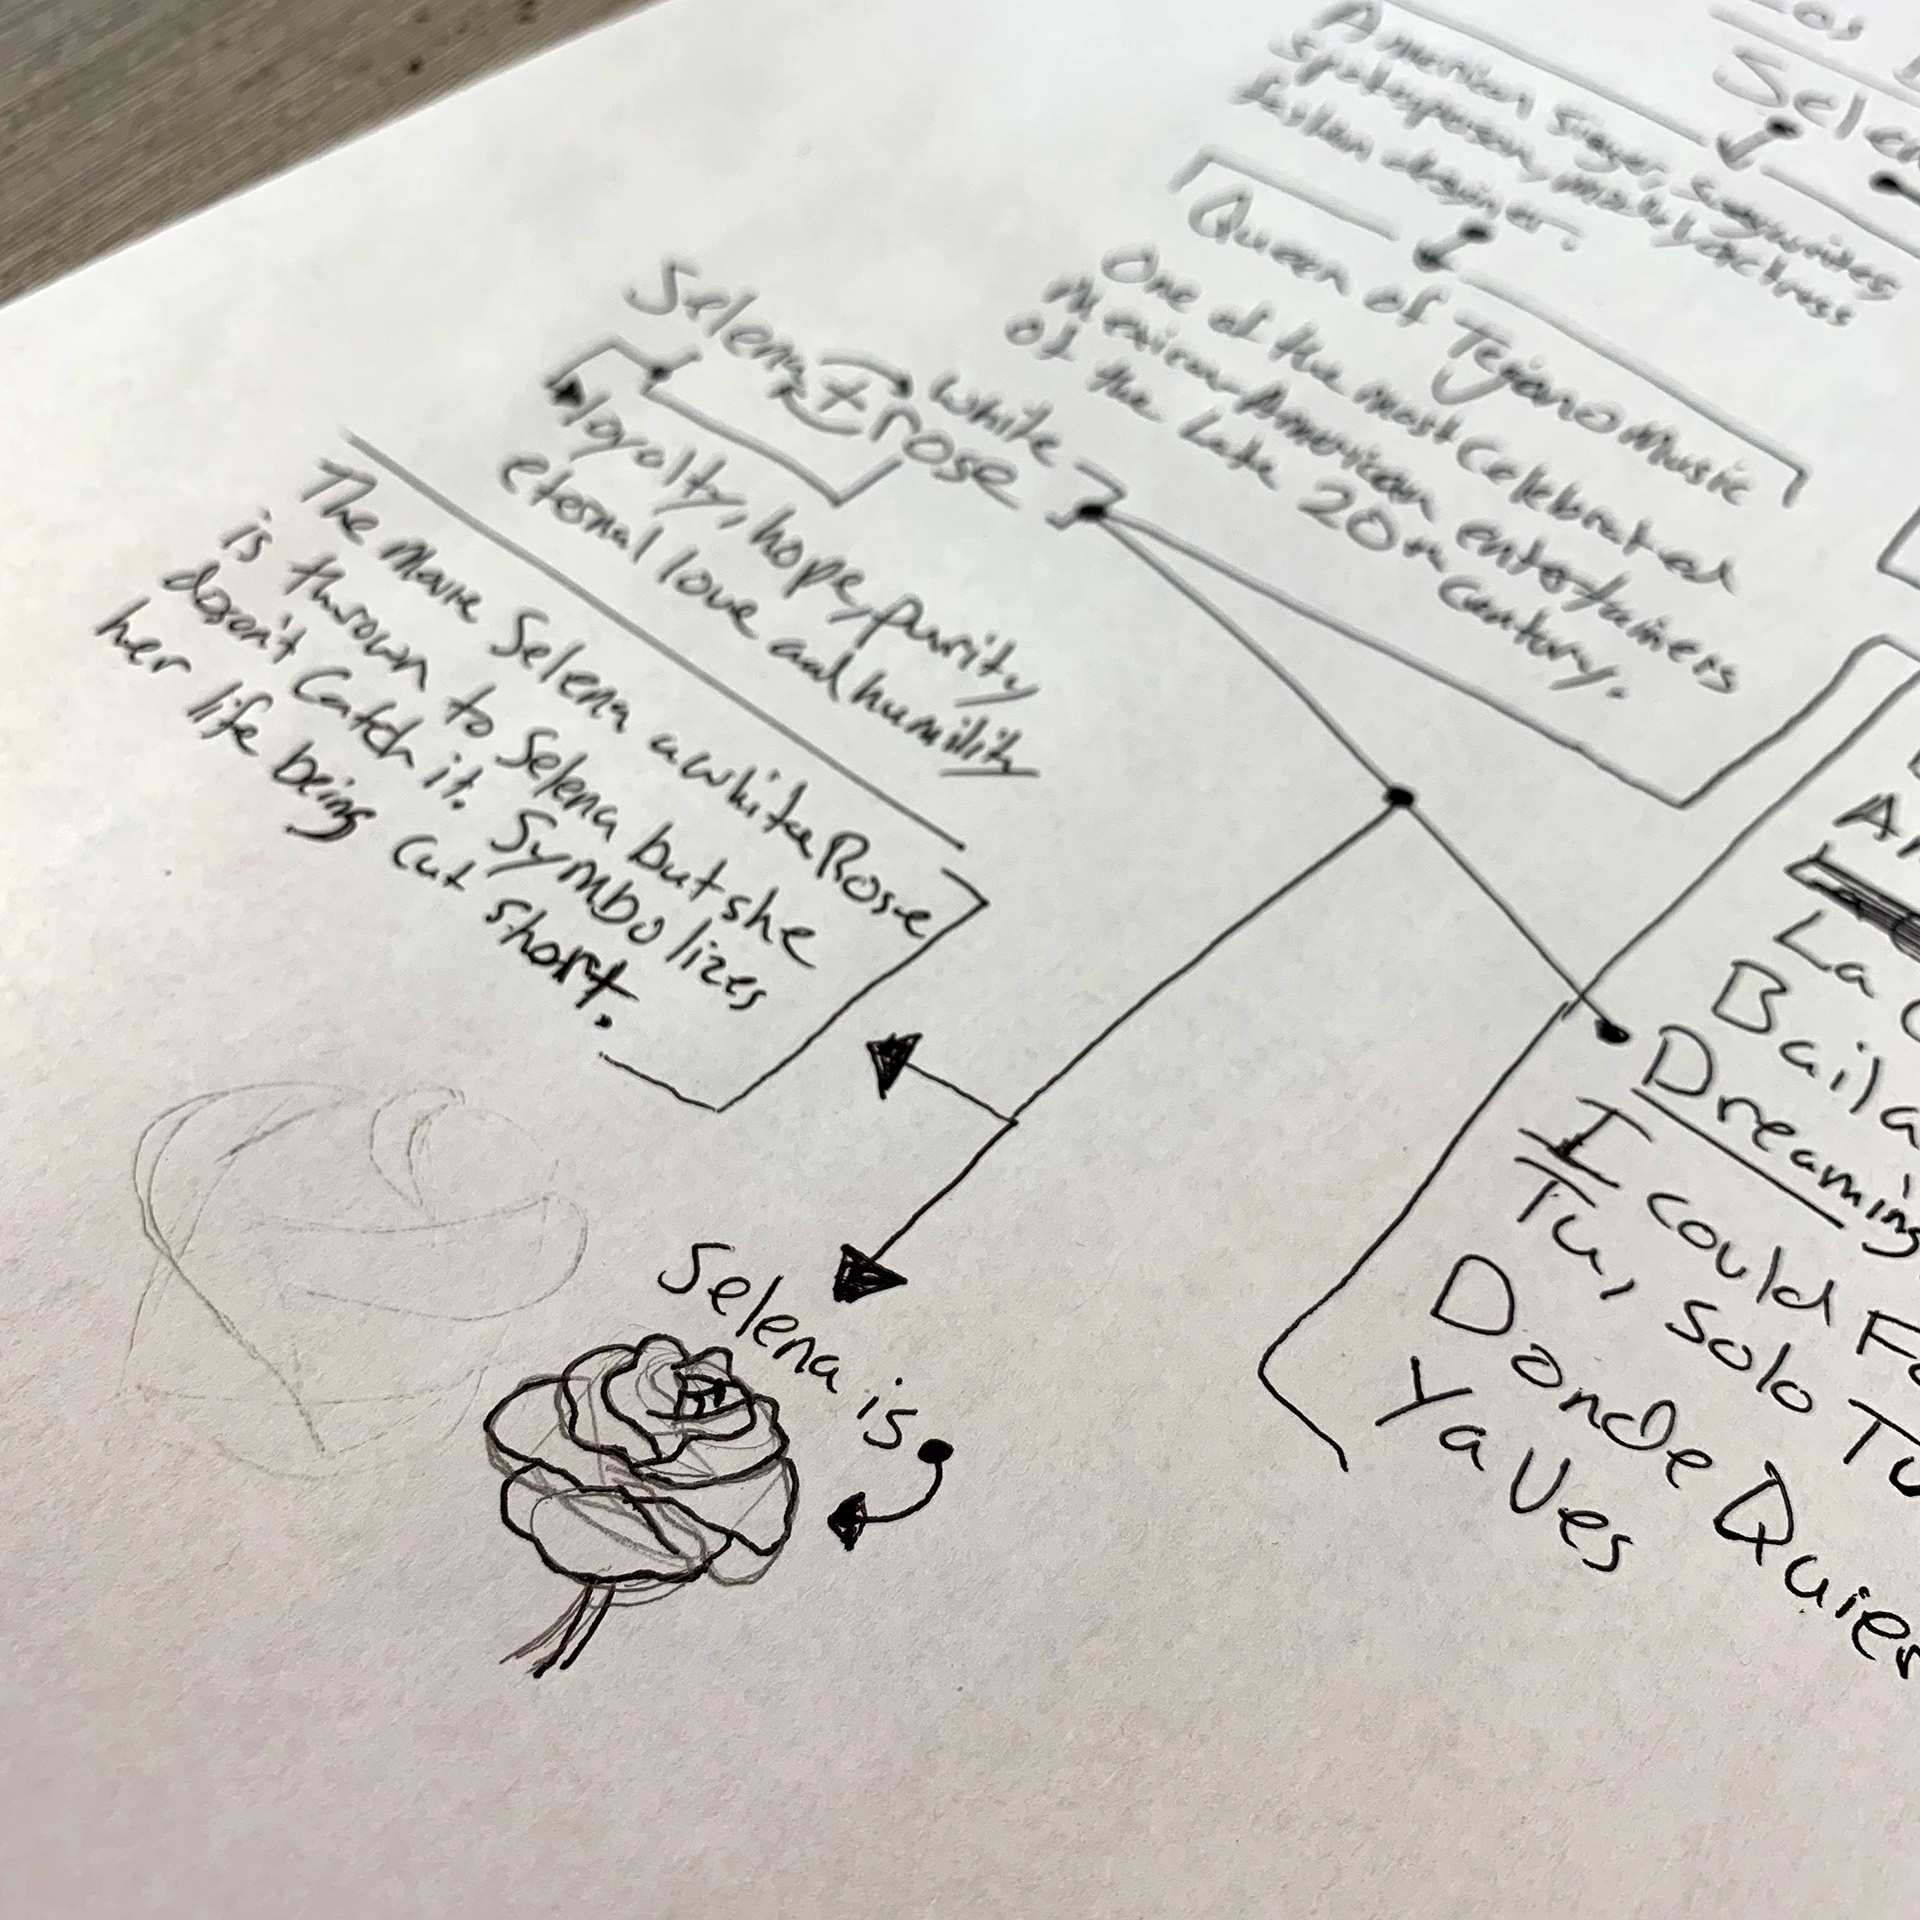 Selen
American Singer, Songwriter
Spokesperson, model, actress
fashion designer.
Queen of Tejano Music
One of the most Celebrated
Mexican-American entertainers
of the Late 20th Century.
Selena + rose
white
loyalty, hope, purity
eternal love and humility
The Movie Selena a white Rose
is thrown to Selena but she
doesn't Catch it. Symbolizes
her life being cut short.
Selena is
La
Baila
Dreaming
I could Fa
Tu, Solo Tu
Donde Quier
Ya Ves